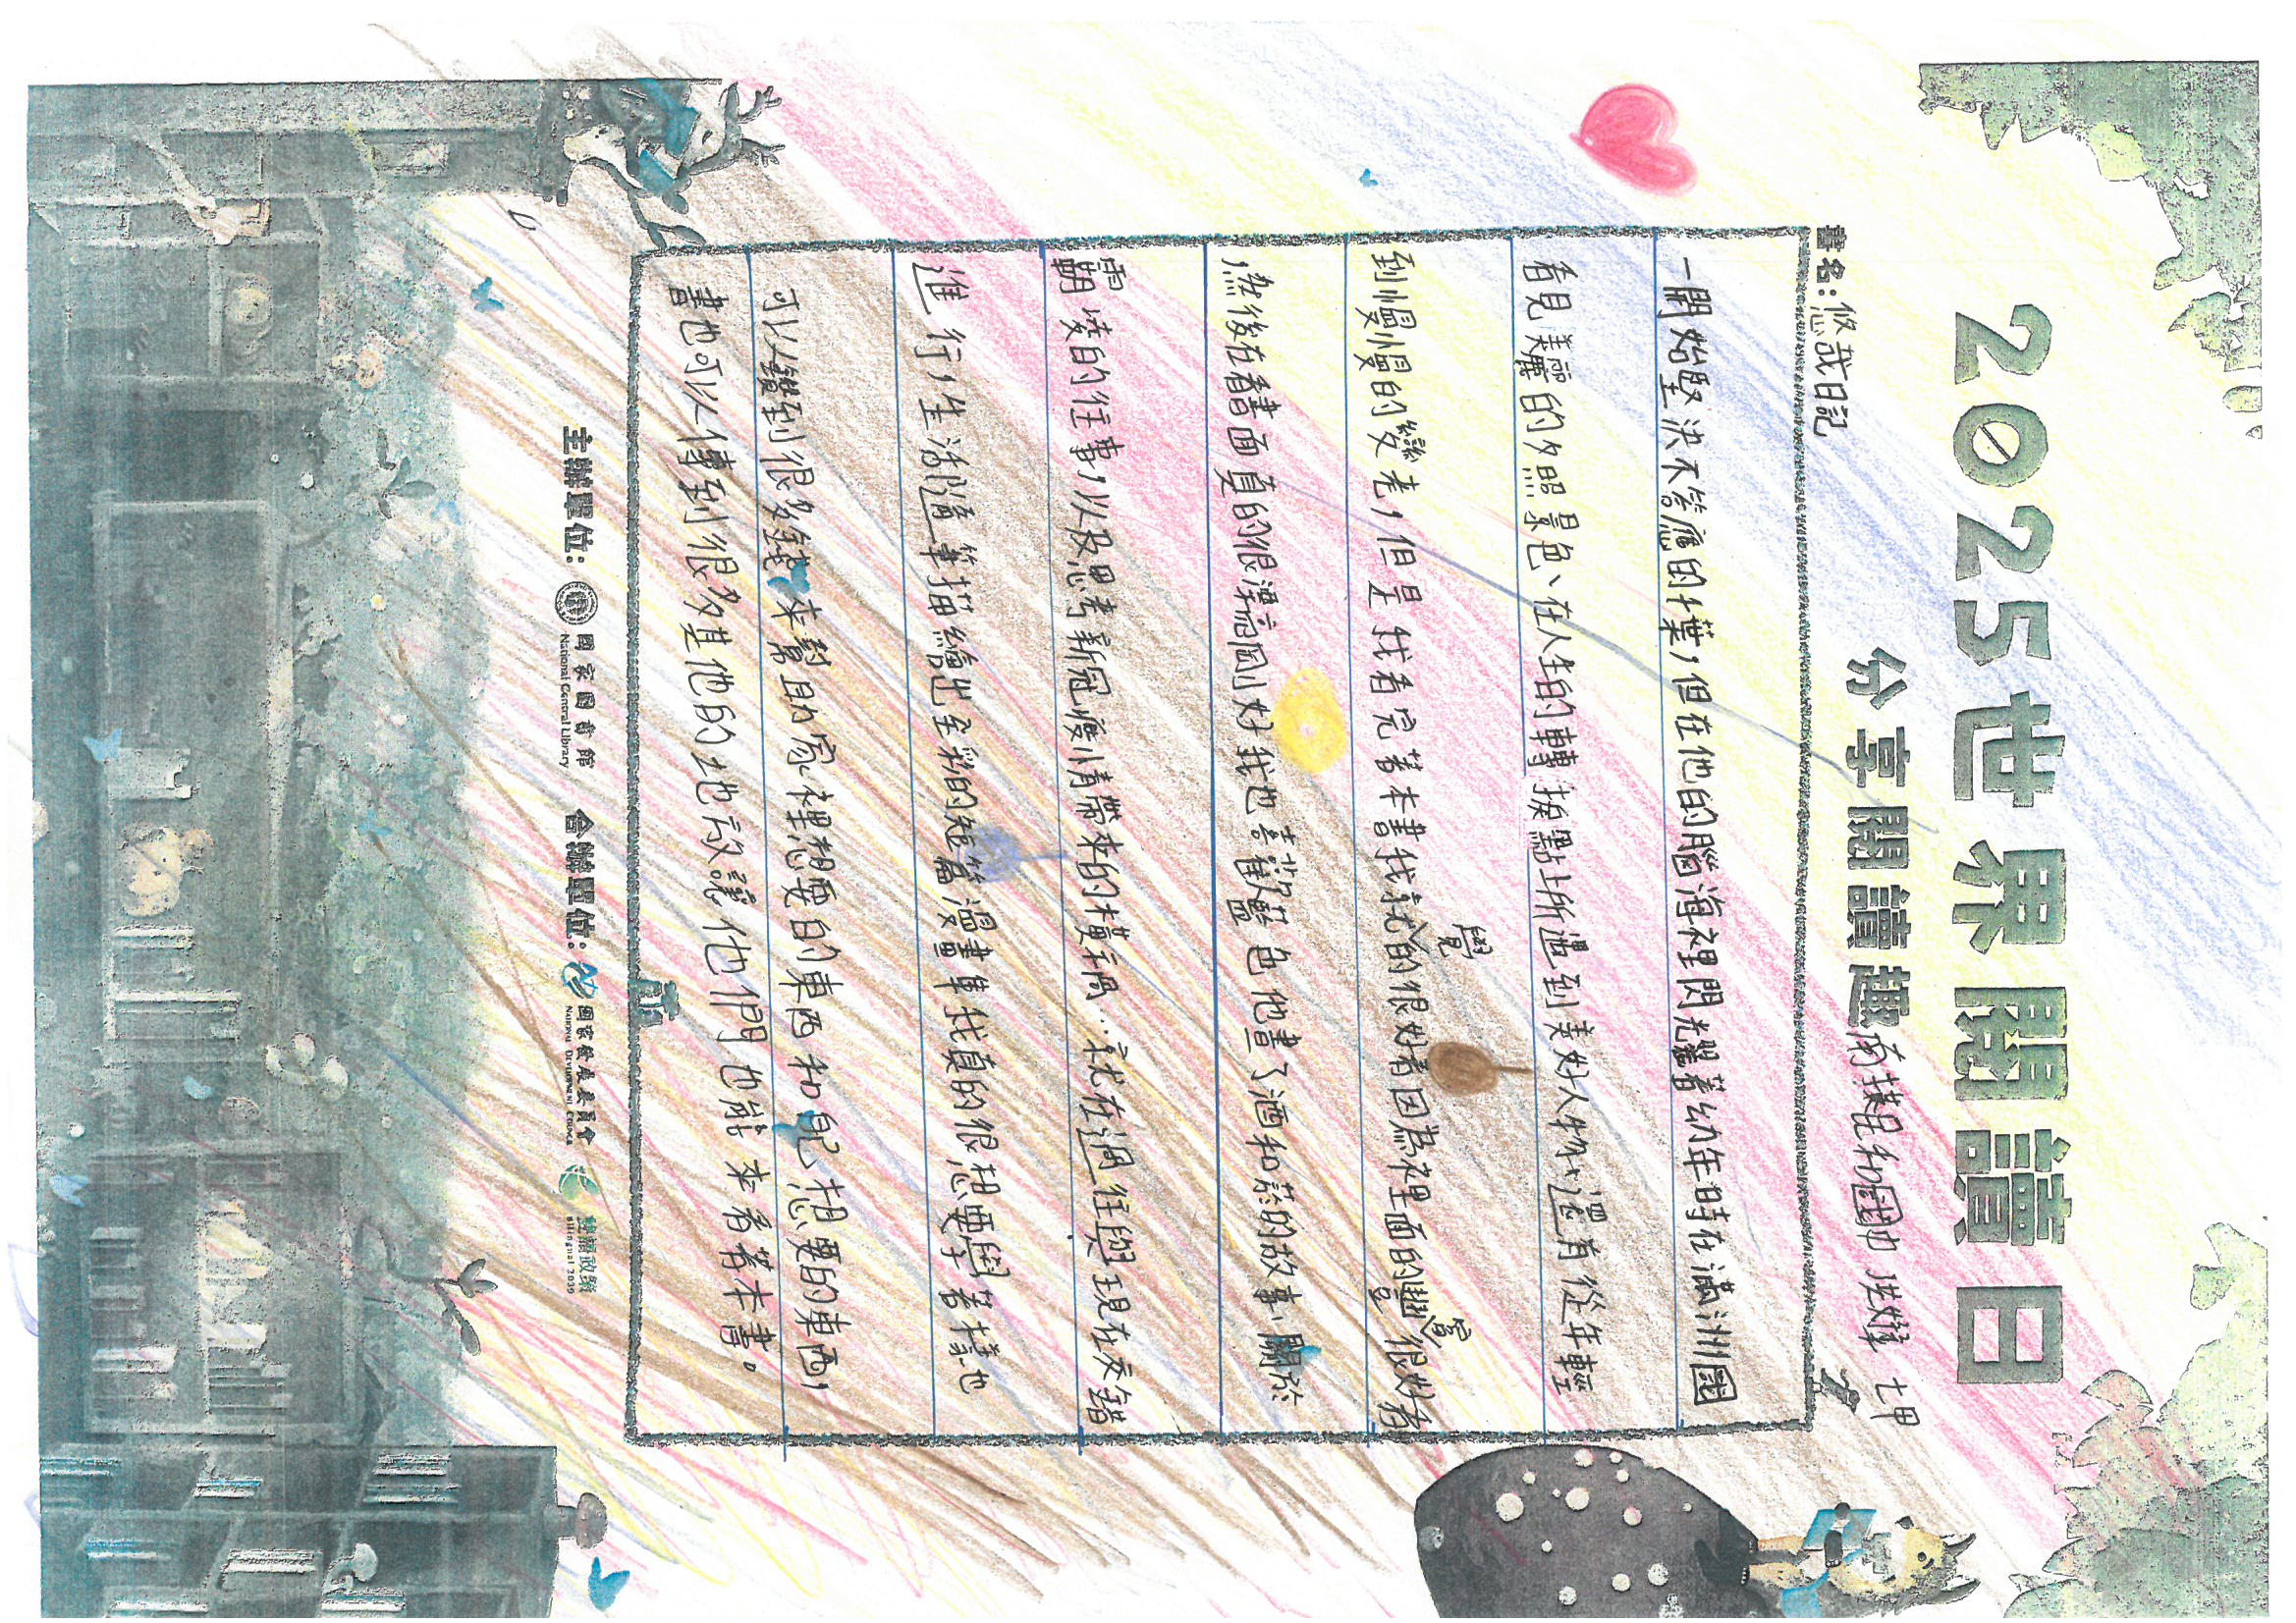 2025世界閱讀日
分享閱讀趣
七甲
書名：悠哉日記
一開始堅決不答應的十葉，但在他的腦海裡閃光著幼年時在滿洲國
看見美麗的夕照景色、在人生的轉捩點上所遇到美好人物，還有從年輕
到慢慢的變老，但是我看完著本書我就覺的很好看因為裡面的豐富很好看
，然後在書面真的很漂亮剛好我也喜歡藍色他畫了酒和菸的故事，關於
霸凌的往事，以及思考新冠疫情帶來的橫禍…就在過往與現在交錯
進行，生活隨筆描繪出全彩的短篇漫畫集我真的很想要學著樣也
可以賺到很多錢來幫助家裡想要的東西和己想要的東西，
書也可以傳到很多其他的地方讓他們也能來看著本書。
主辦單位：國家圖書館 National Central Library 合辦單位：國家發展委員會 National Development Council 雙語政策 Bilingual 2030